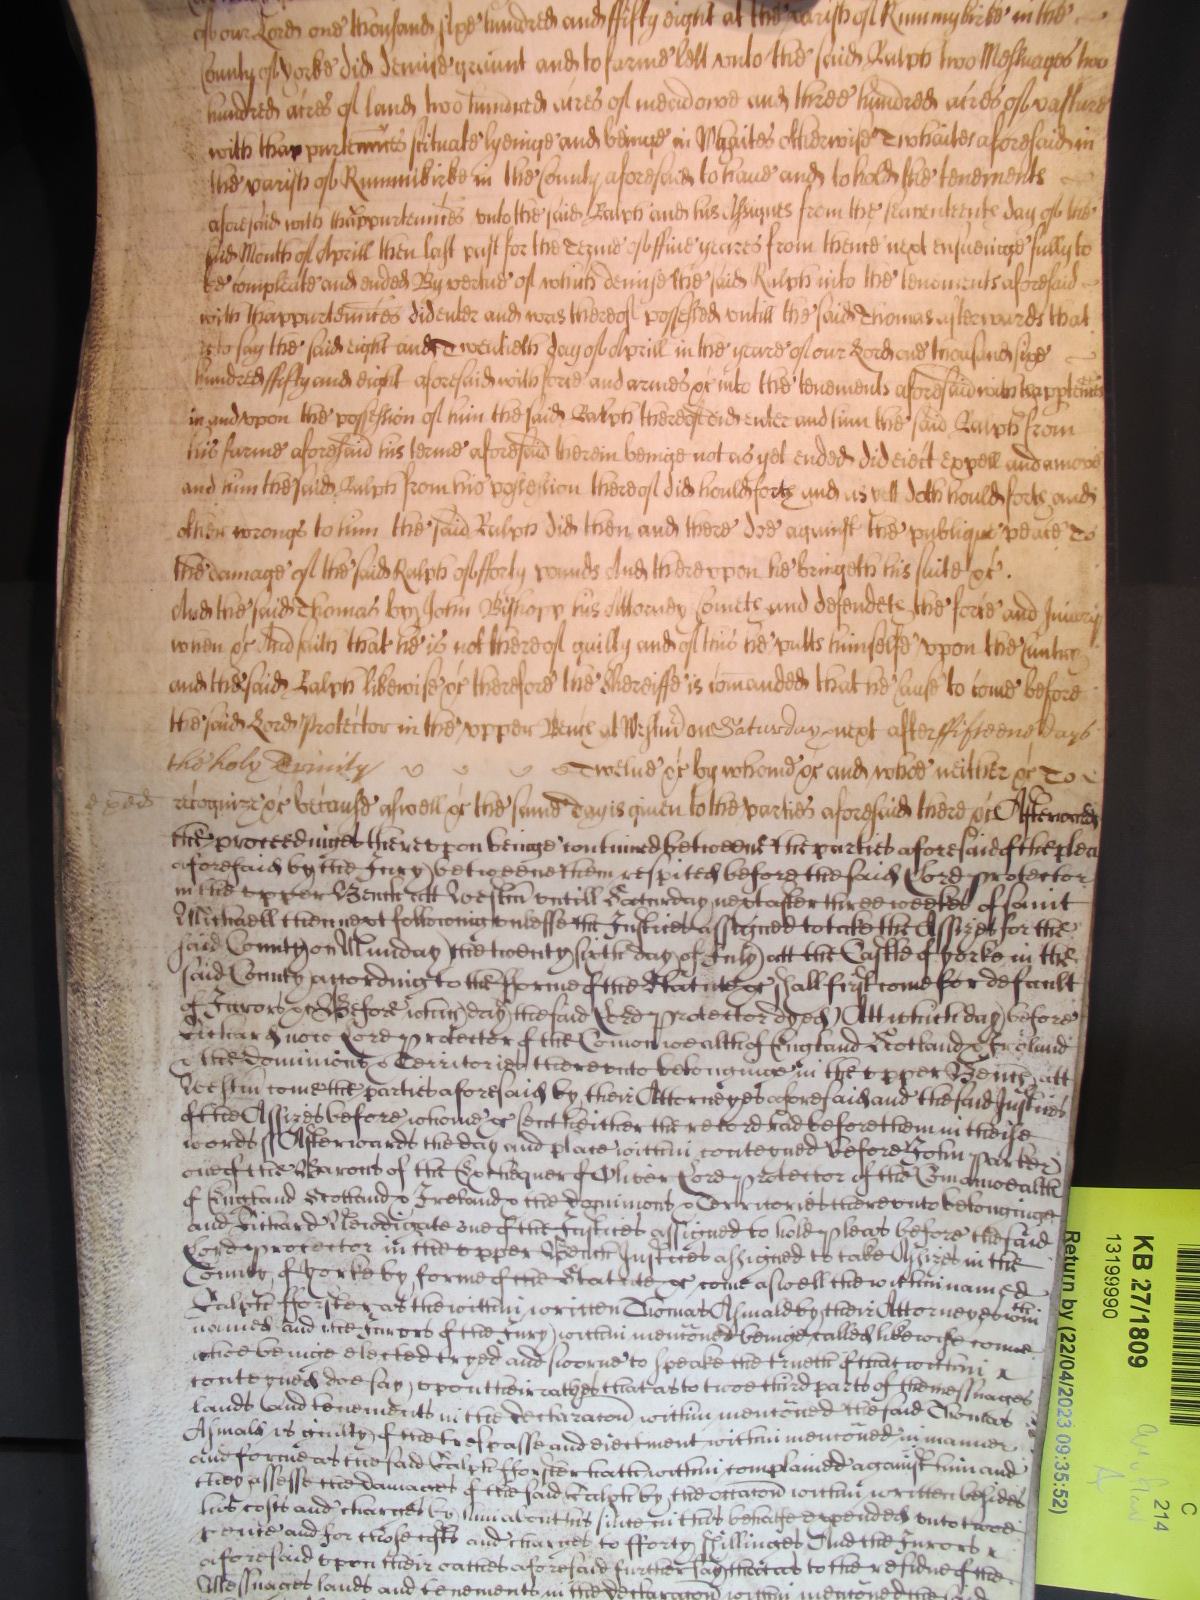 of our Lord one thousand sixe hundred and fifty eight at the parish of Rummykirke in the
County of Yorke did demise graunt and to farme lett unto the said Ralph two Messuages two
hundred acres of land two hundred acres of meadowe and three hundred acres of pasture
with thappurtennces scituate lyeinge and beinge in Thwaites otherwise Twhaites aforesaid in
the parish of Rummikirke in the County aforesaid to have and to hold the tenements
aforesaid with thappurtennces unto the said Ralph and his Assignes from the seaventeenth day of the
said Month of Aprill then last past for the Terme of ffive yeares from thence next ensueinge fully to
be compleate and ended By vertue of which demise the said Ralph into the tenements aforesaid
with thappurtennces did enter and was thereof possessed untill the said Thomas afterwards that
is to say the said eight and Twentieth day of Aprill in the yeare of our Lord one thousand sixe
hundred ffifty and eight aforesaid with force and armes &c into the tenements aforesaid with thapptences
in and upon the possession of him the said Ralph thereof did enter and him the said Ralph from
his farme aforesaid his terme aforesaid therein beinge not as yet ended did eiect expell and amove
and him the said Ralph from his possession thereof did hould forth and as yett doth hould forth and
other wrongs to him the said Ralph did then and there doe against the publique peace To
the damage of the said Ralph of fforty pounds And thereupon he bringeth his suite &c.
And the said Thomas by John Bishopp his Attorney Cometh and defendeth the force and Iniury
when &c And saith that he is not thereof guilty and of this he putts himselfe upon the Cuntry
and the said Ralph likewise &c therefore the Shereiffe is comanded that he cause to come before
the said Lord Protector in the upper Bench at Westmr on Saturday next after ffifteene days
the holy Trinity Twelve &c by whome &c and whoe neither &c To
recognize &c because aswell &c the same day is given to the parties aforesaid there &c Afterwards
the proceedinges thereupon beinge continued betweene the parties aforesaid of the plea
aforesaid by the Jury betweene them respited before the said Lord Protector
in the upper Bench att Westm untill Saturday next after three weekes of saint
Michaell then next followinge unlesse the Justices assigned to take the Assizes for the
said County on Munday the twenty sixth day of July att the Castle of Yorke in the
said County according to the fforme of the Statute &c shall first come for default
of Jurors &c Before which day the said Lord Protector dyed Att which day before
Richard now Lord Protector of the Comonwealth of England Scotland & Ireland
& the Dominions & Territories thereunto belonginge in the upper Bench att
Westm come the parties aforesaid by their Attorneyes aforesaid and the said Justices
of the Assizes before whome &c sent hether the record had before them in theise
words ss Afterwards the day and place within conteyned before John Parker
one of the Barons of the Exchequer of Oliver Lord Protector of the Comonwealth
of England Scotland & Ireland & the dominions & Territories thereunto belonginge
and Richard Newdigate one of the Justices assigned to hold pleas before the said
Lord Protector in the upper Bench Justices assigned to take Assizes in the
County of Yorke by forme of the Statute &c come aswell the within named
Ralph fforster as the within written Thomas Asmald by their Attorneyes within
named And the Jurors of the Jury within mentoned beinge called likewise come
whoe beinge elected tryed and sworne to speake the trueth of that within
conteyned doe say upon their oathes that as to twoe third parts of the messuages
lands and tenements in the declaraton within mentoned the said Thomas
Asmald is guilty of the trespasse and eiectment within mentoned in manner
and forme as the said Ralph fforster hath within complained against him and
they assesse the damages of the said Ralph by the occaton within written besides
his costs and charges by him about his suite in this behalfe expended unto twoe
pence and for those costs and charges to fforty shillinges And the Jurors
aforesaid upon their oathes aforesaid further say that as to the residue of the
Messuages lands and tenements in the declaraton within mentoned the said
KB 27/1809
13199990
Return by (22/04/2023 09:35:52)
C
214